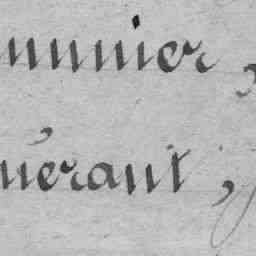 unnier,
uérant,